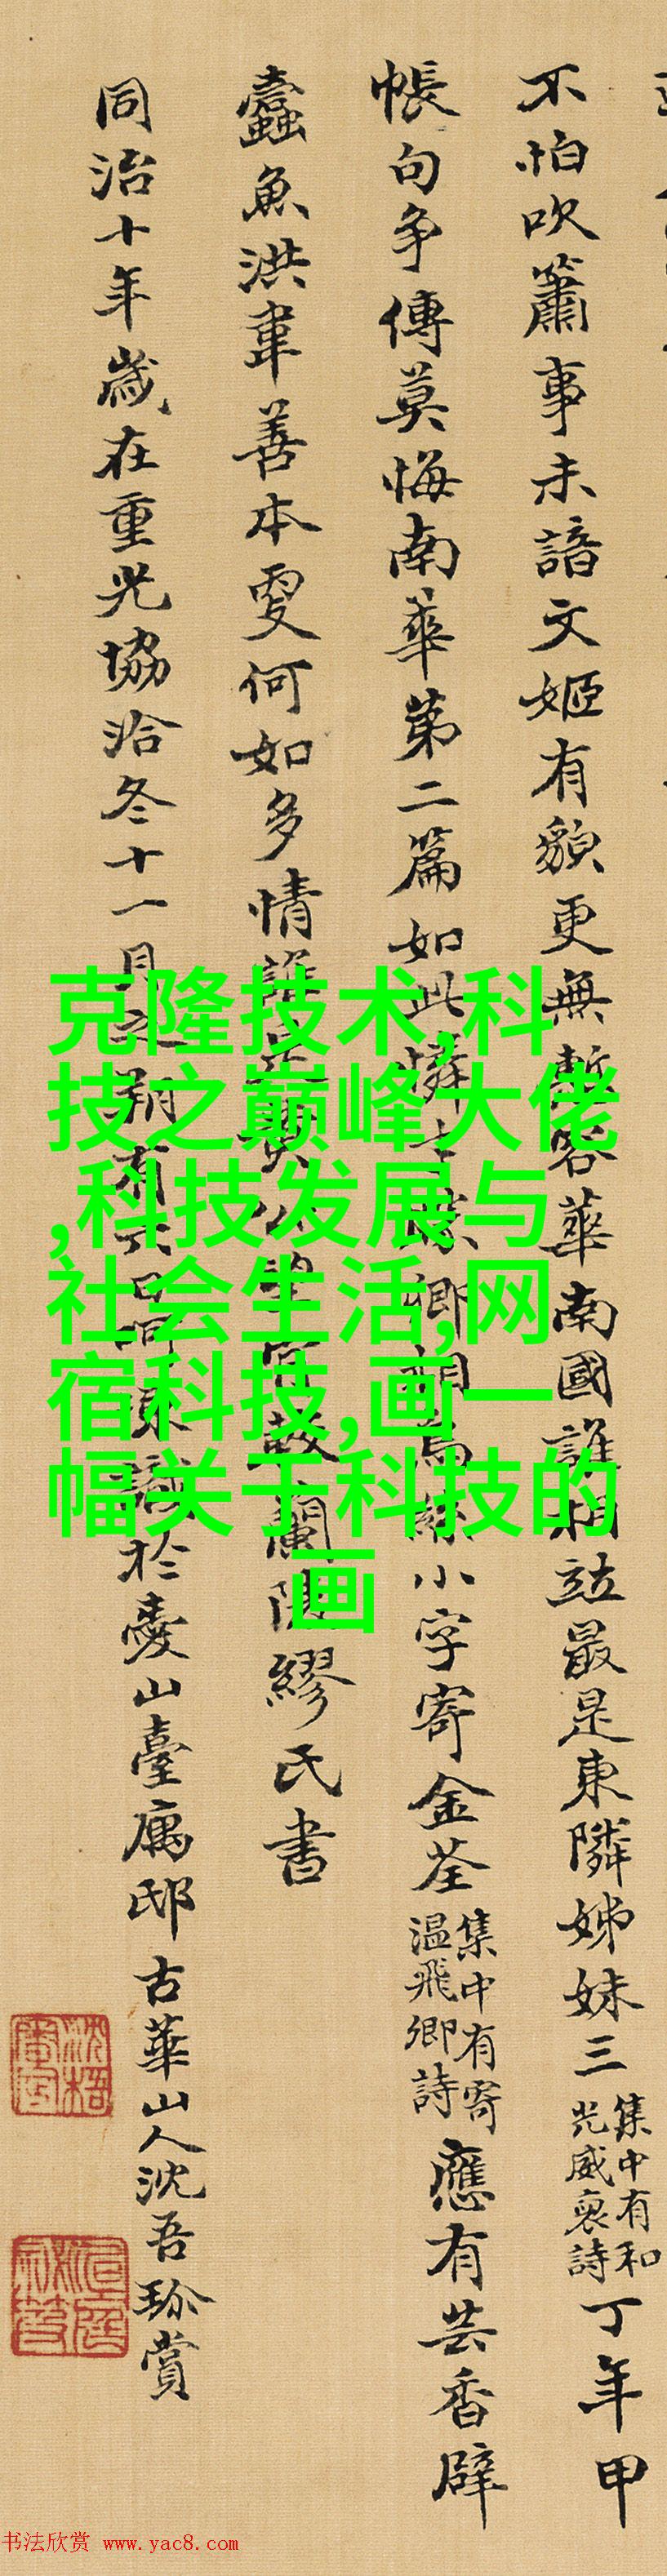 不怕吹簫事未諳文姬有貌更無慙容華南國誰相竝最是東隣姊妹三
集中有和
光威裒詩
丁年甲
帳句爭傳莫悔南華第二篇如此憐才
卿
小字寄金荃
集中有寄
温飛卿詩
應有芸香辟
蠹魚洪韋善本要何如多情
蘭陵繆氏書
同治十年歲在重光協洽冬十一月之朔有六日
識於
山臺寓邸古華山人沈吾珍賞
克隆技术,科
技之巅峰大佬
,科技发展与
社会生活,网
宿科技,画一
幅关于科技的
画
书法欣赏 www.yac8.com